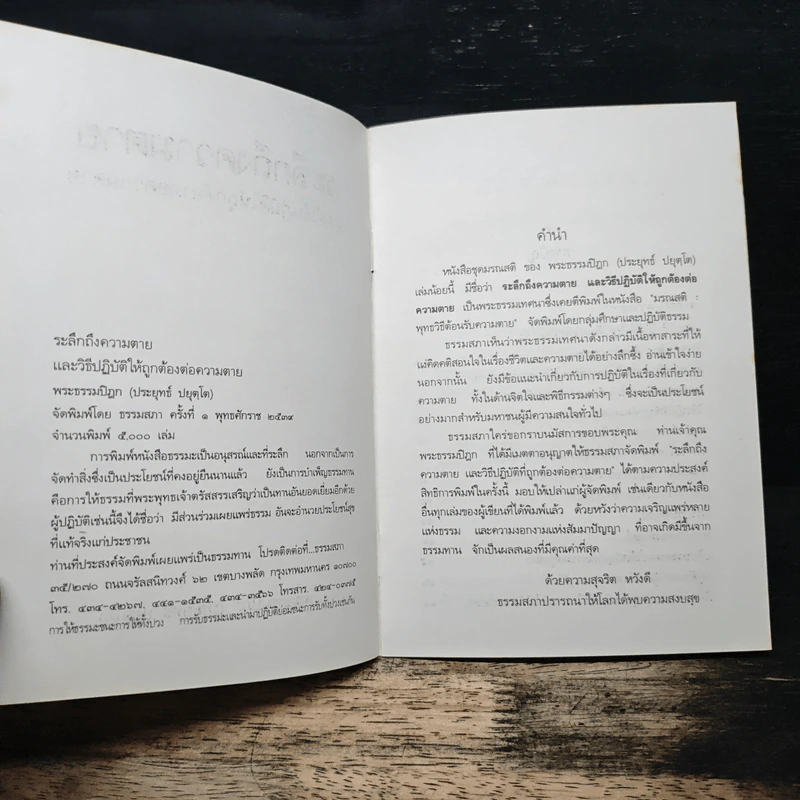 ระลึกถึงความตาย
และวิธีปฏิบัติให้ถูกต้องต่อความตาย
พระธรรมปิฎก (ประยุทธ์ ปยุตฺโต)
จัดพิมพ์โดย ธรรมสภา ครั้งที่ ๑ พุทธศักราช ๒๕๓๙
จำนวนพิมพ์ ๕,๐๐๐ เล่ม
การพิมพ์หนังสือธรรมะเป็นอนุสรณ์และที่ระลึก นอกจากเป็นการ
จัดทำสิ่งซึ่งเป็นประโยชน์ที่คงอยู่ยืนนานแล้ว ยังเป็นการบำเพ็ญธรรมทาน
คือการให้ธรรมที่พระพุทธเจ้าตรัสสรรเสริญว่าเป็นทานอันยอดเยี่ยมอีกด้วย
ผู้ปฏิบัติเช่นนี้จึงได้ชื่อว่า มีส่วนร่วมเผยแพร่ธรรม อันจะอำนวยประโยชน์สุข
ที่แท้จริงแก่ประชาชน
ท่านที่ประสงค์จัดพิมพ์เผยแพร่เป็นธรรมทาน โปรดติดต่อที่...ธรรมสภา
๓๕/๒๗๐ ถนนจรัลสนิทวงศ์ ๖๒ เขตบางพลัด กรุงเทพมหานคร ๑๐๗๐๐
โทร. ๔๓๔-๔๒๖๗, ๔๔๑-๑๕๓๕, ๔๓๔-๓๕๖๖ โทรสาร. ๔๒๔-๐๓๗๕
การให้ธรรมะชนะการให้ทั้งปวง การรับธรรมะและนำมาปฏิบัติย่อมชนะการรับทั้งปวงเช่นกัน
คำนำ
หนังสือชุดมรณสติ ของ พระธรรมปิฎก (ประยุทธ์ ปยุตฺโต)
เล่มน้อยนี้ มีชื่อว่า ระลึกถึงความตาย และวิธีปฏิบัติให้ถูกต้องต่อ
ความตาย เป็นพระธรรมเทศนาซึ่งเคยตีพิมพ์ในหนังสือ "มรณสติ :
พุทธวิธีต้อนรับความตาย" จัดพิมพ์โดยกลุ่มศึกษาและปฏิบัติธรรม
ธรรมสภาเห็นว่าพระธรรมเทศนาดังกล่าวมีเนื้อหาสาระที่ให้
แง่คิดคติสอนใจในเรื่องชีวิตและความตายได้อย่างลึกซึ้ง อ่านเข้าใจง่าย
นอกจากนั้น ยังมีข้อแนะนำเกี่ยวกับการปฏิบัติในเรื่องที่เกี่ยวกับ
ความตาย ทั้งในด้านจิตใจและพิธีกรรมต่างๆ ซึ่งจะเป็นประโยชน์
อย่างมากสำหรับมหาชนผู้มีความสนใจทั่วไป
ธรรมสภาใคร่ขอกราบนมัสการขอบพระคุณ ท่านเจ้าคุณ
พระธรรมปิฎก ที่ได้มีเมตตาอนุญาตให้ธรรมสภาจัดพิมพ์ "ระลึกถึง
ความตาย และวิธีปฏิบัติที่ถูกต้องต่อความตาย" ได้ตามความประสงค์
สิทธิการพิมพ์ในครั้งนี้ มอบให้เปล่าแก่ผู้จัดพิมพ์ เช่นเดียวกับหนังสือ
อื่นทุกเล่มของผู้เขียนที่ได้พิมพ์แล้ว ด้วยหวังความเจริญแพร่หลาย
แห่งธรรม และความงอกงามแห่งสัมมาปัญญา ที่อาจเกิดมีขึ้นจาก
ธรรมทาน จักเป็นผลสนองที่มีคุณค่าที่สุด
ด้วยความสุจริต หวังดี
ธรรมสภาปรารถนาให้โลกได้พบความสงบสุข